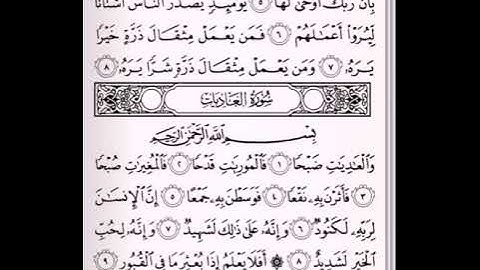 بِأَنَّ رَبَّكَ أَوْحَىٰ لَهَا ٥ يَوْمَئِذٍ يَصْدُرُ ٱلنَّاسُ أَشْتَاتًا
لِّيُرَوْا۟ أَعْمَـٰلَهُمْ ٦ فَمَن يَعْمَلْ مِثْقَالَ ذَرَّةٍ خَيْرًا
يَرَهُۥ ٧ وَمَن يَعْمَلْ مِثْقَالَ ذَرَّةٍ شَرًّا يَرَهُۥ ٨
سُورَةُ العَادِيَات
بِسْمِ ٱللَّهِ ٱلرَّحْمَـٰنِ ٱلرَّحِيمِ
وَٱلْعَـٰدِيَـٰتِ ضَبْحًا ١ فَٱلْمُورِيَـٰتِ قَدْحًا ٢ فَٱلْمُغِيرَٰتِ صُبْحًا
٣ فَأَثَرْنَ بِهِۦ نَقْعًا ٤ فَوَسَطْنَ بِهِۦ جَمْعًا ٥ إِنَّ ٱلْإِنسَـٰنَ
لِرَبِّهِۦ لَكَنُودٌ ٦ وَإِنَّهُۥ عَلَىٰ ذَٰلِكَ لَشَهِيدٌ ٧ وَإِنَّهُۥ لِحُبِّ
ٱلْخَيْرِ لَشَدِيدٌ ٨ ۞ أَفَلَا يَعْلَمُ إِذَا بُعْثِرَ مَا فِى ٱلْقُبُورِ ٩